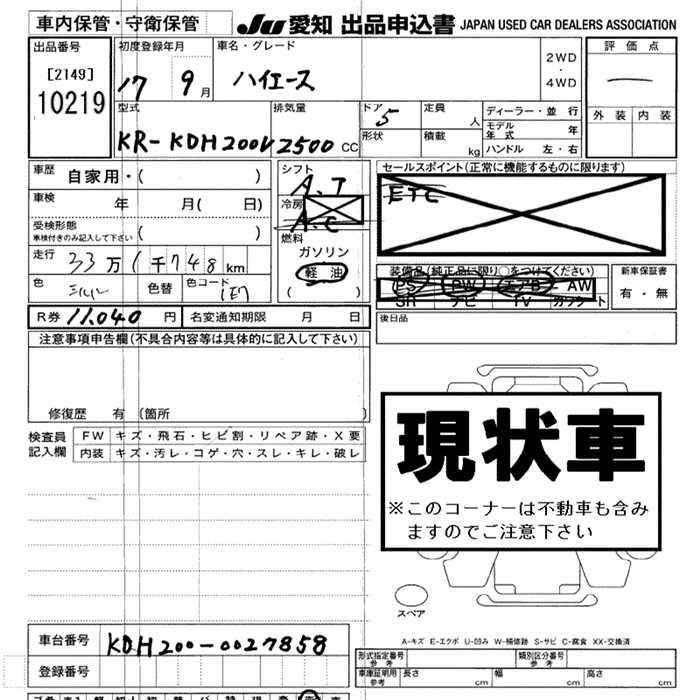 車内保管・守衛保管 JU 愛知 出品申込書 JAPAN USED CAR DEALERS ASSOCIATION
出品番号 [2149] 10219
初度登録年月 17 9月
車名・グレード ハイエース
2WD・4WD
評価点 —
外装 内装
型式 KR-KDH200V
排気量 2500 CC
ドア 5
形状
定員 人
積載 kg
ディーラー・並行
モデル年式 年
ハンドル 左・右
車歴 自家用・( )
車検 年 月( 日)
受検形態 車検付きのみ記入して下さい ( )
走行 33万1千748km
色 シルバー 色替 色コード 1E7
シフト A.T
冷房 A.C
燃料 ガソリン 軽油 ( )
セールスポイント(正常に機能するものに限ります)
ETC
装備品(純正品に限り○をつけてください)
PS PW エアB AW
SR ナビ TV カワシート
新車保証書 有・無
後日品
R券 11,040円 名変通知期限 月 日
注意事項申告欄(不具合内容等は具体的に記入して下さい)
修復歴 有(箇所 )
検査員記入欄
FW キズ・飛石・ヒビ割・リペア跡・X要
内装 キズ・汚レ・コゲ・穴・スレ・キレ・破レ
現状車
※このコーナーは不動車も含みますのでご注意下さい
スペア
A-キズ E-エクボ U-凹み W-補修跡 S-サビ C-腐食 XX-交換済
車台番号 KDH200-0027858
登録番号
形式指定番号 参考
類別区分番号 参考
車庫証明用 参考 長さ cm 幅 cm 高さ cm